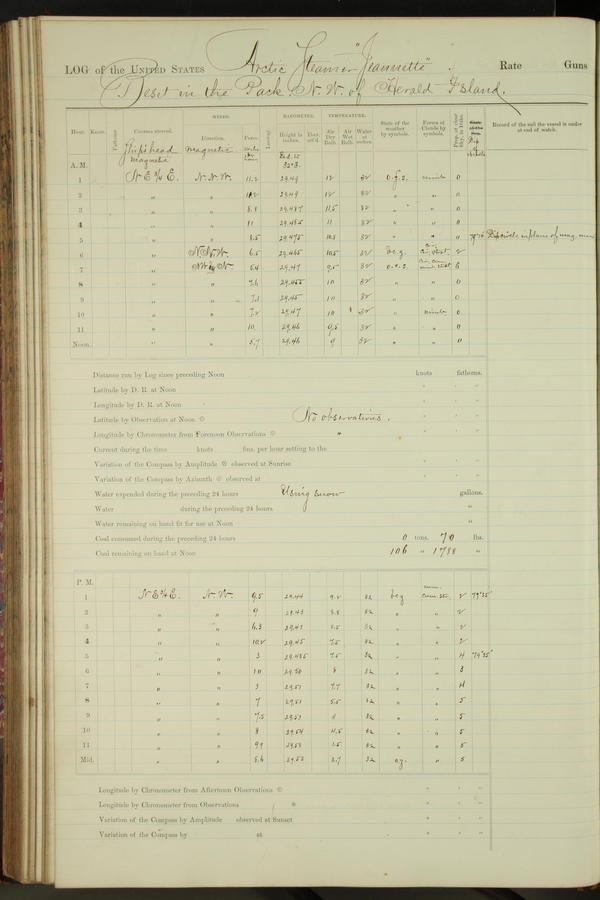 LOG of the UNITED STATES Arctic Steamer "Jeannette". Rate Guns
Beset in the Pack. N. W. of Herald Island.
WINDS. BAROMETER. TEMPERATURE.
Hour. Knots. Fathoms. Courses steered. Direction. Force. Leeway. Height in inches. Ther. att'd. Air Dry Bulb. Air Wet Bulb. Water at surface. State of the weather by symbols. Forms of Clouds by symbols. Record of the sail the vessel is under at end of watch.
Ship's head magnetic magnetic
A. M.
1 N E ¾ E. N. N. W. 11.2 29.49 12 32 o.g.s. nimb 0
2 " " 29.49 12 32 " " 0
3 " " 8.8 29.487 11.5 32 " " 0
4 " " 11 29.485 11 32 " " 0
5 " " 8.5 29.475 10.3 32 " " 0
6 " N.N.W. 6.5 29.465 10.5 32 b.c.g. 2
7 " NW by N. 5.4 29.47 9.5 32 o.c.s.
8 " " 7.6 29.455 10 32 " " 0
9 " " 7.1 29.45 10 32 " " 0
10 " " 7.2 29.47 10 32 " nimb 0
11 " " 10. 29.46 9.5 32 " " 0
Noon. " " 5.7 29.46 9 32 " " 0
Distance run by Log since preceding Noon knots fathoms.
Latitude by D. R. at Noon
Longitude by D. R. at Noon
Latitude by Observation at Noon No observations.
Longitude by Chronometer from Forenoon Observations "
Current during the time knots fms. per hour setting to the
Variation of the Compass by Amplitude observed at Sunrise
Variation of the Compass by Azimuth observed at
Water expended during the preceding 24 hours Using snow gallons.
Water during the preceding 24 hours "
Water remaining on hand fit for use at Noon "
Coal consumed during the preceding 24 hours 0 tons. 70 lbs.
Coal remaining on hand at Noon 106 " 1788 "
P. M.
1 N E ¾ E. N. W. 9.5 29.44 9.2 32 b.c.g 2
2 " " 9 29.43 8.8 32 " " 2
3 " " 6.3 29.43 8.5 32 " " 2
4 " " 10.2 29.45 7.5 32 " " 2
5 " " 3 29.485 7.5 32 " " 4
6 " " 10 29.50 8 32 " " 3
7 " " 3 29.51 7.7 32 " " 4
8 " " 7 29.51 5.5 32 " " 5
9 " " 7.5 29.53 32 " " 5
10 " " 8 29.54 4.5 32 " " 5
11 " " 29.53 32 " " 5
Mid. " " 5.6 29.53 32 " 5
Longitude by Chronometer from Afternoon Observations
Longitude by Chronometer from Observations
Variation of the Compass by Amplitude observed at Sunset
Variation of the Compass by at